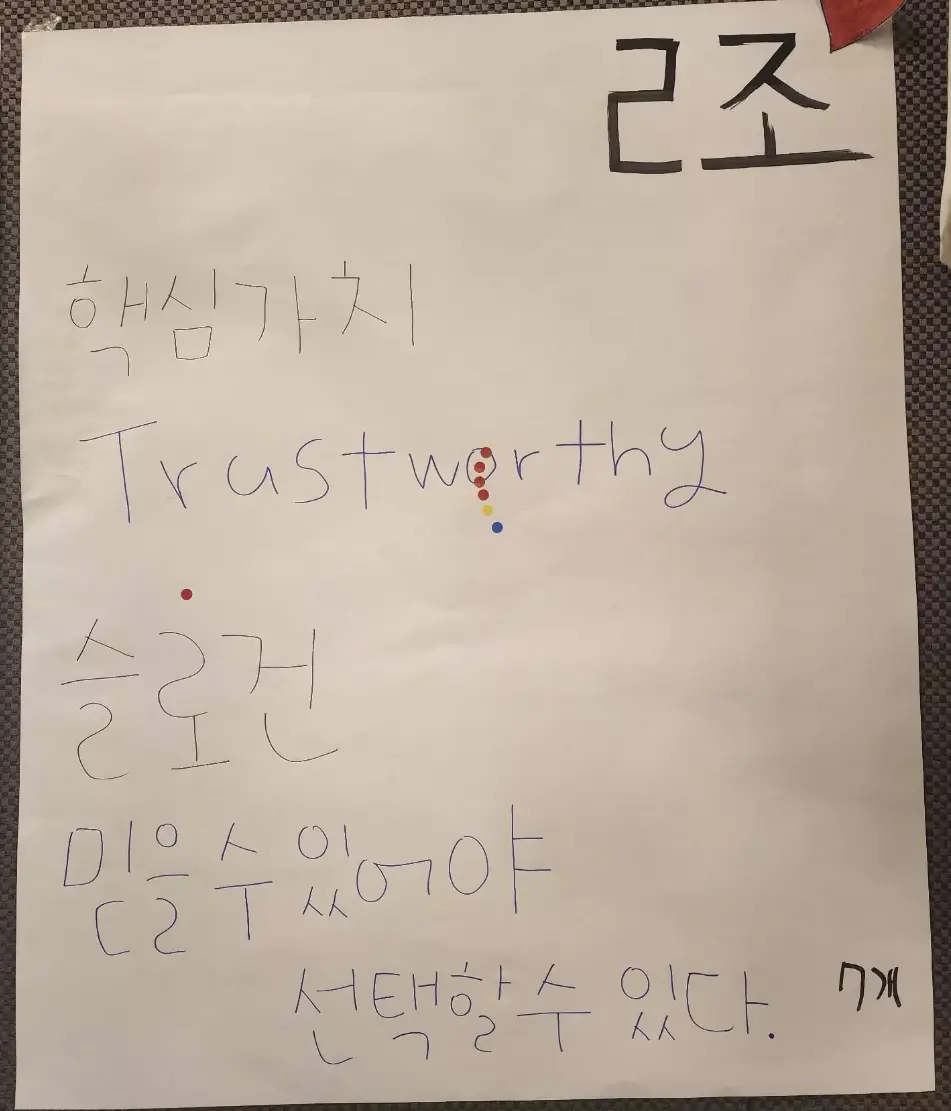 2조
핵심가치
Trustworthy
슬로건
믿을 수 있어야
선택할 수 있다.
7개